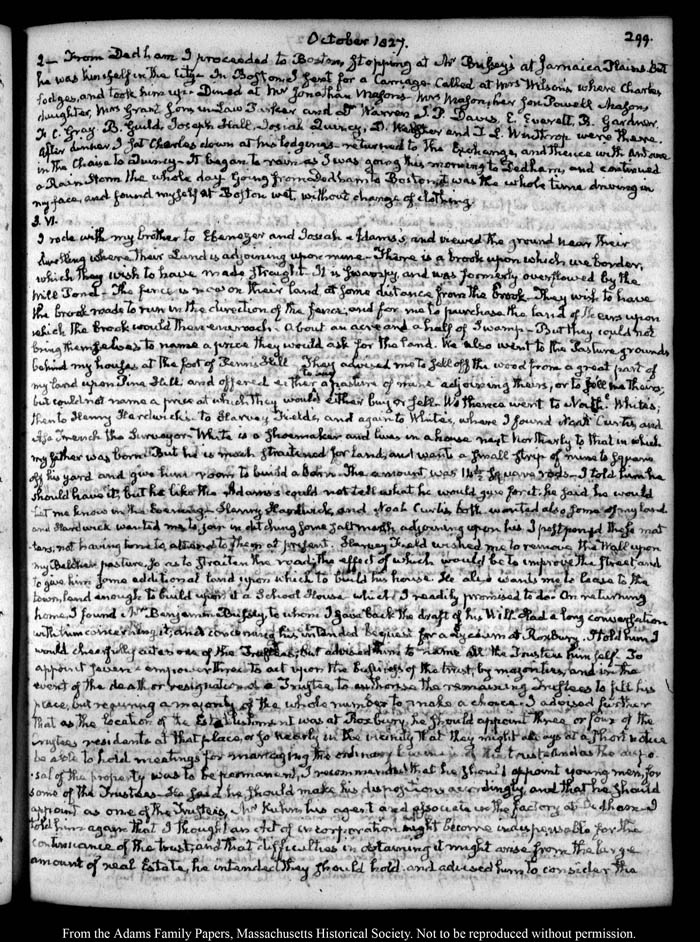 October 1827.
299.
2— From Dedham I proceeded to Boston, stopping at Mr Bussey's at Jamaica Plains. But
he was himself in the City. In Boston I sent for a Carriage. Called at Mrs Wilson's where Charles
lodges, and took him up. Dined at Mr Jonathan Mason's. Mrs Mason, her son Powell Mason,
daughter, Mrs Grant Son in Law Parker and Dr Warren J. P. Davis, E. Everett, R. Gardner,
F. C. Gray. B. Guild, Joseph Hall, Josiah Quincy, D. Webster and T. L. Winthrop were there.
After dinner I set Charles down at his lodgings returned to the Exchange, and thence with Antoine
in the Chaise to Quincy. It began to rain as I was going this morning to Dedham, and continued
a Rain Storm the whole day. Going from Dedham to Boston it was the whole time driving in
my face, and found myself at Boston wet, without change of clothing.
3. VI.
I rode with my brother to Ebenezer and Josiah Adams's, and viewed the ground near their
dwelling where their Land is adjoining upon mine. There is a brook upon which we border,
which they wish to have made straight. It is swampy, and was formerly overflowed by the
Mill Pond. The fence is now on their land at some distance from the brook. They wish to have
the brook made to run in the direction of the fence, and for me to purchase the land of theirs upon
which the brook would then encroach. About an acre and a half of Swamp. But they could not
bring themselves to name a price they would ask for the land. We also went to the Pasture grounds
behind my house, at the foot of Penn's Hill. They advised me to sell off the wood from a great part of
my land upon Pine Hill, and offered either to buy a pasture of mine adjoining theirs, or to sell me theirs;
but could not name a price at which they would either buy or sell. We thence went to North. White's;
then to Henry Hardwick's to Harvey Field's, and again to White's, where I found Noah Curtis and
Asa French the Surveyor. White is a Shoemaker and lives in a house next Northerly to that in which
my father was born. But he is much straitened for land, and wants a small strip of mine to square
off his yard and give him room to build a barn. The amount was 14 square rods. I told him he
should have it, but he like the Adams's could not tell what he would give for it. he said he would
let me know in this Evening. Henry Hardwick, and Noah Curtis, both wanted also some of my land
and Hardwick wanted me to join in ditching some salt marsh adjoining upon his. I postponed these mat-
ters, not having time to attend to them at present. Harvey Field wished me to remove the Wall upon
my Belcher pasture, so as to straiten the road; the effect of which would be to improve the Street and
to give him some additional land upon which to build his house. He also wants me to lease to the
town, land enough to build upon it a School House which I readily promised to do. On returning
home, I found Mr Benjamin Bussey, to whom I gave back the draft of his Will. Had a long conversation
with him concerning it; and concerning his intended bequest for a Lyceum at Roxbury. I told him I
would cheerfully act as one of the Trustees, but advised him to name all the Trustees himself. To
appoint seven & empower three to act upon the business of the trust, by majorities, and in the
event of the death or resignation of a Trustee to authorise the remaining Trustees to fill his
place, but requiring a majority of the whole number to make a choice. I advised further
that as the location of the Establishment was at Roxbury, he should appoint three or four of the
Trustees residents at that place, or so nearly in the vicinity that they might always at a short notice
be able to hold meetings for managing the ordinary business of the trust. And as the dispo-
-sal of the property was to be permanent, I recommended that he should appoint young men, for
some of the Trustees. He said he should make his dispositions accordingly, and that he should
appoint as one of the Trustees, Mr Kuhn his agent and associate in the factory at Dedham. I
told him again that I thought an Act of incorporation might become indispensable for the
continuance of the trust, and that difficulties in obtaining it might arise from the large
amount of real Estate, he intended they should hold and advised him to consider the
From the Adams Family Papers, Massachusetts Historical Society. Not to be reproduced without permission.